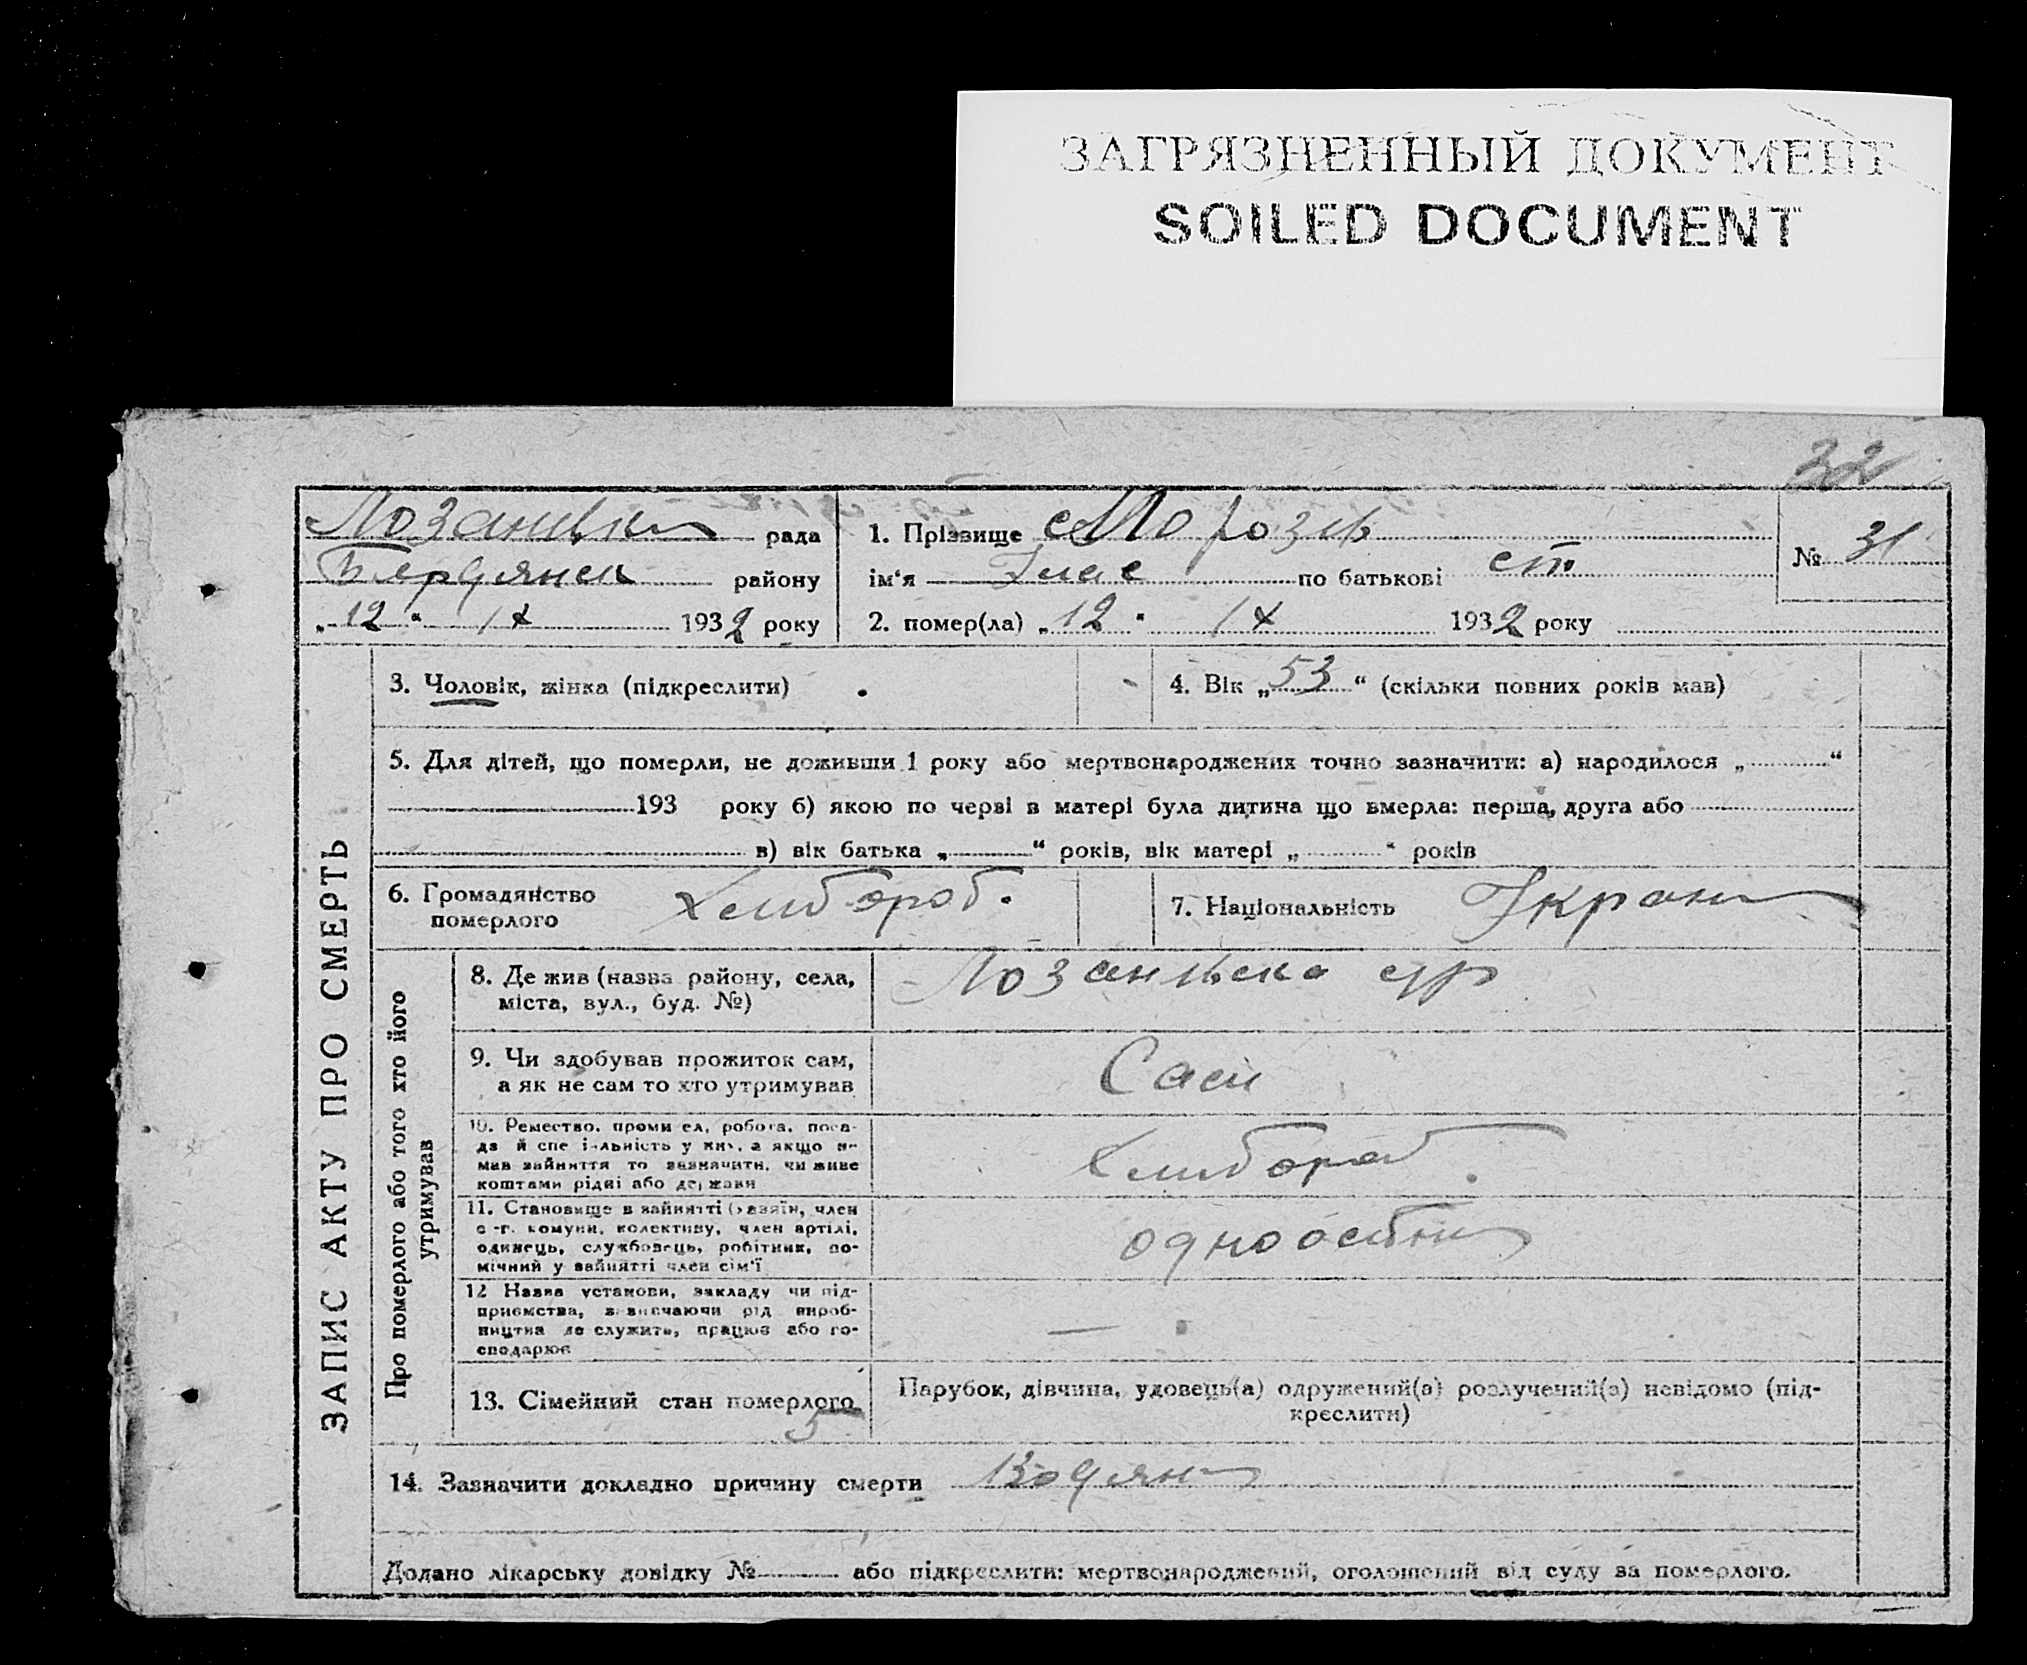 ЗАГРЯЗНЕННЫЙ ДОКУМЕНТ
SOILED DOCUMENT
32
рада
району
„12“ IX 1932 року
1. Прізвище
ім'я по батькові ст.
2. помер(ла) „12“ IX 1932 року
№ 31
ЗАПИС АКТУ ПРО СМЕРТЬ
3. Чоловік, жінка (підкреслити)
4. Вік „53“ (скільки повних років мав)
5. Для дітей, що померли, не доживши 1 року або мертвонароджених точно зазначити: а) народилося „ “
193 року б) якою по черві в матері була дитина що вмерла: перша, друга або
в) вік батька „ “ років, вік матері „ “ років
6. Громадянство
померлого
Хлибороб.
7. Національність
Про померлого або того хто його
утримував
8. Де жив (назва району, села,
міста, вул., буд. №)
9. Чи здобував прожиток сам,
а як не сам то хто утримував
Сам
10. Ремество, промисел, робота, поса-
да й спеціальність у них, а якщо не
мав зайняття то зазначити, чи живе
коштами рідні або держави
Хлибороб.
11. Становище в зайнятті (хазяїн, член
с.-г. комуни, колективу, член артілі,
одинець, службовець, робітник, по-
мічний у зайнятті член сім'ї
12 Назва установи, закладу чи під-
приємства, зазначаючи рід вироб-
ництва де служить, працює або го-
сподарює
—
13. Сімейний стан померлого
5
Парубок, дівчина, удовець(а) одружений(а) розлучений(а) невідомо (під-
креслити)
14. Зазначити докладно причину смерти
Додано лікарську довідку № або підкреслити: мертвонароджений, оголошений від суду за померлого.